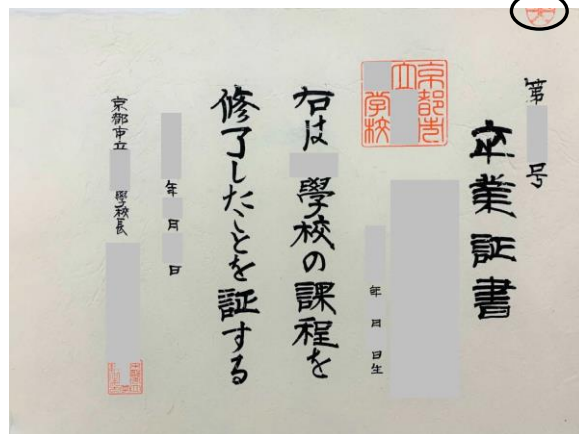 第 号
卒業証書
年 月 日生
京都市
立
学校
右は 學校の課程を
修了したことを証する
年 月 日
京都市立 學校長